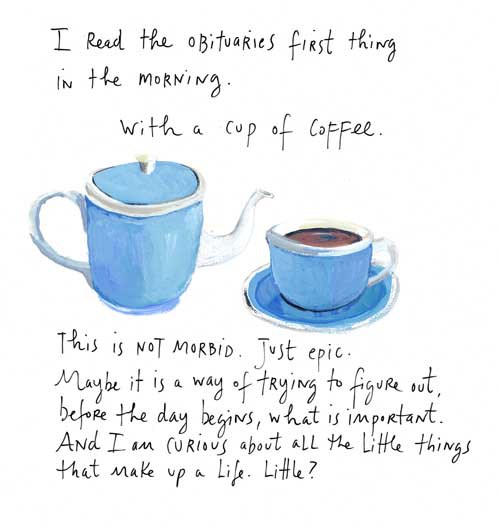 I Read the obituaries first thing
in the morning.
With a cup of coffee.
This is NOT MORBID. Just epic.
Maybe it is a way of trying to figure out,
before the day begins, what is important.
And I am curious about all the little things
that make up a life. Little?